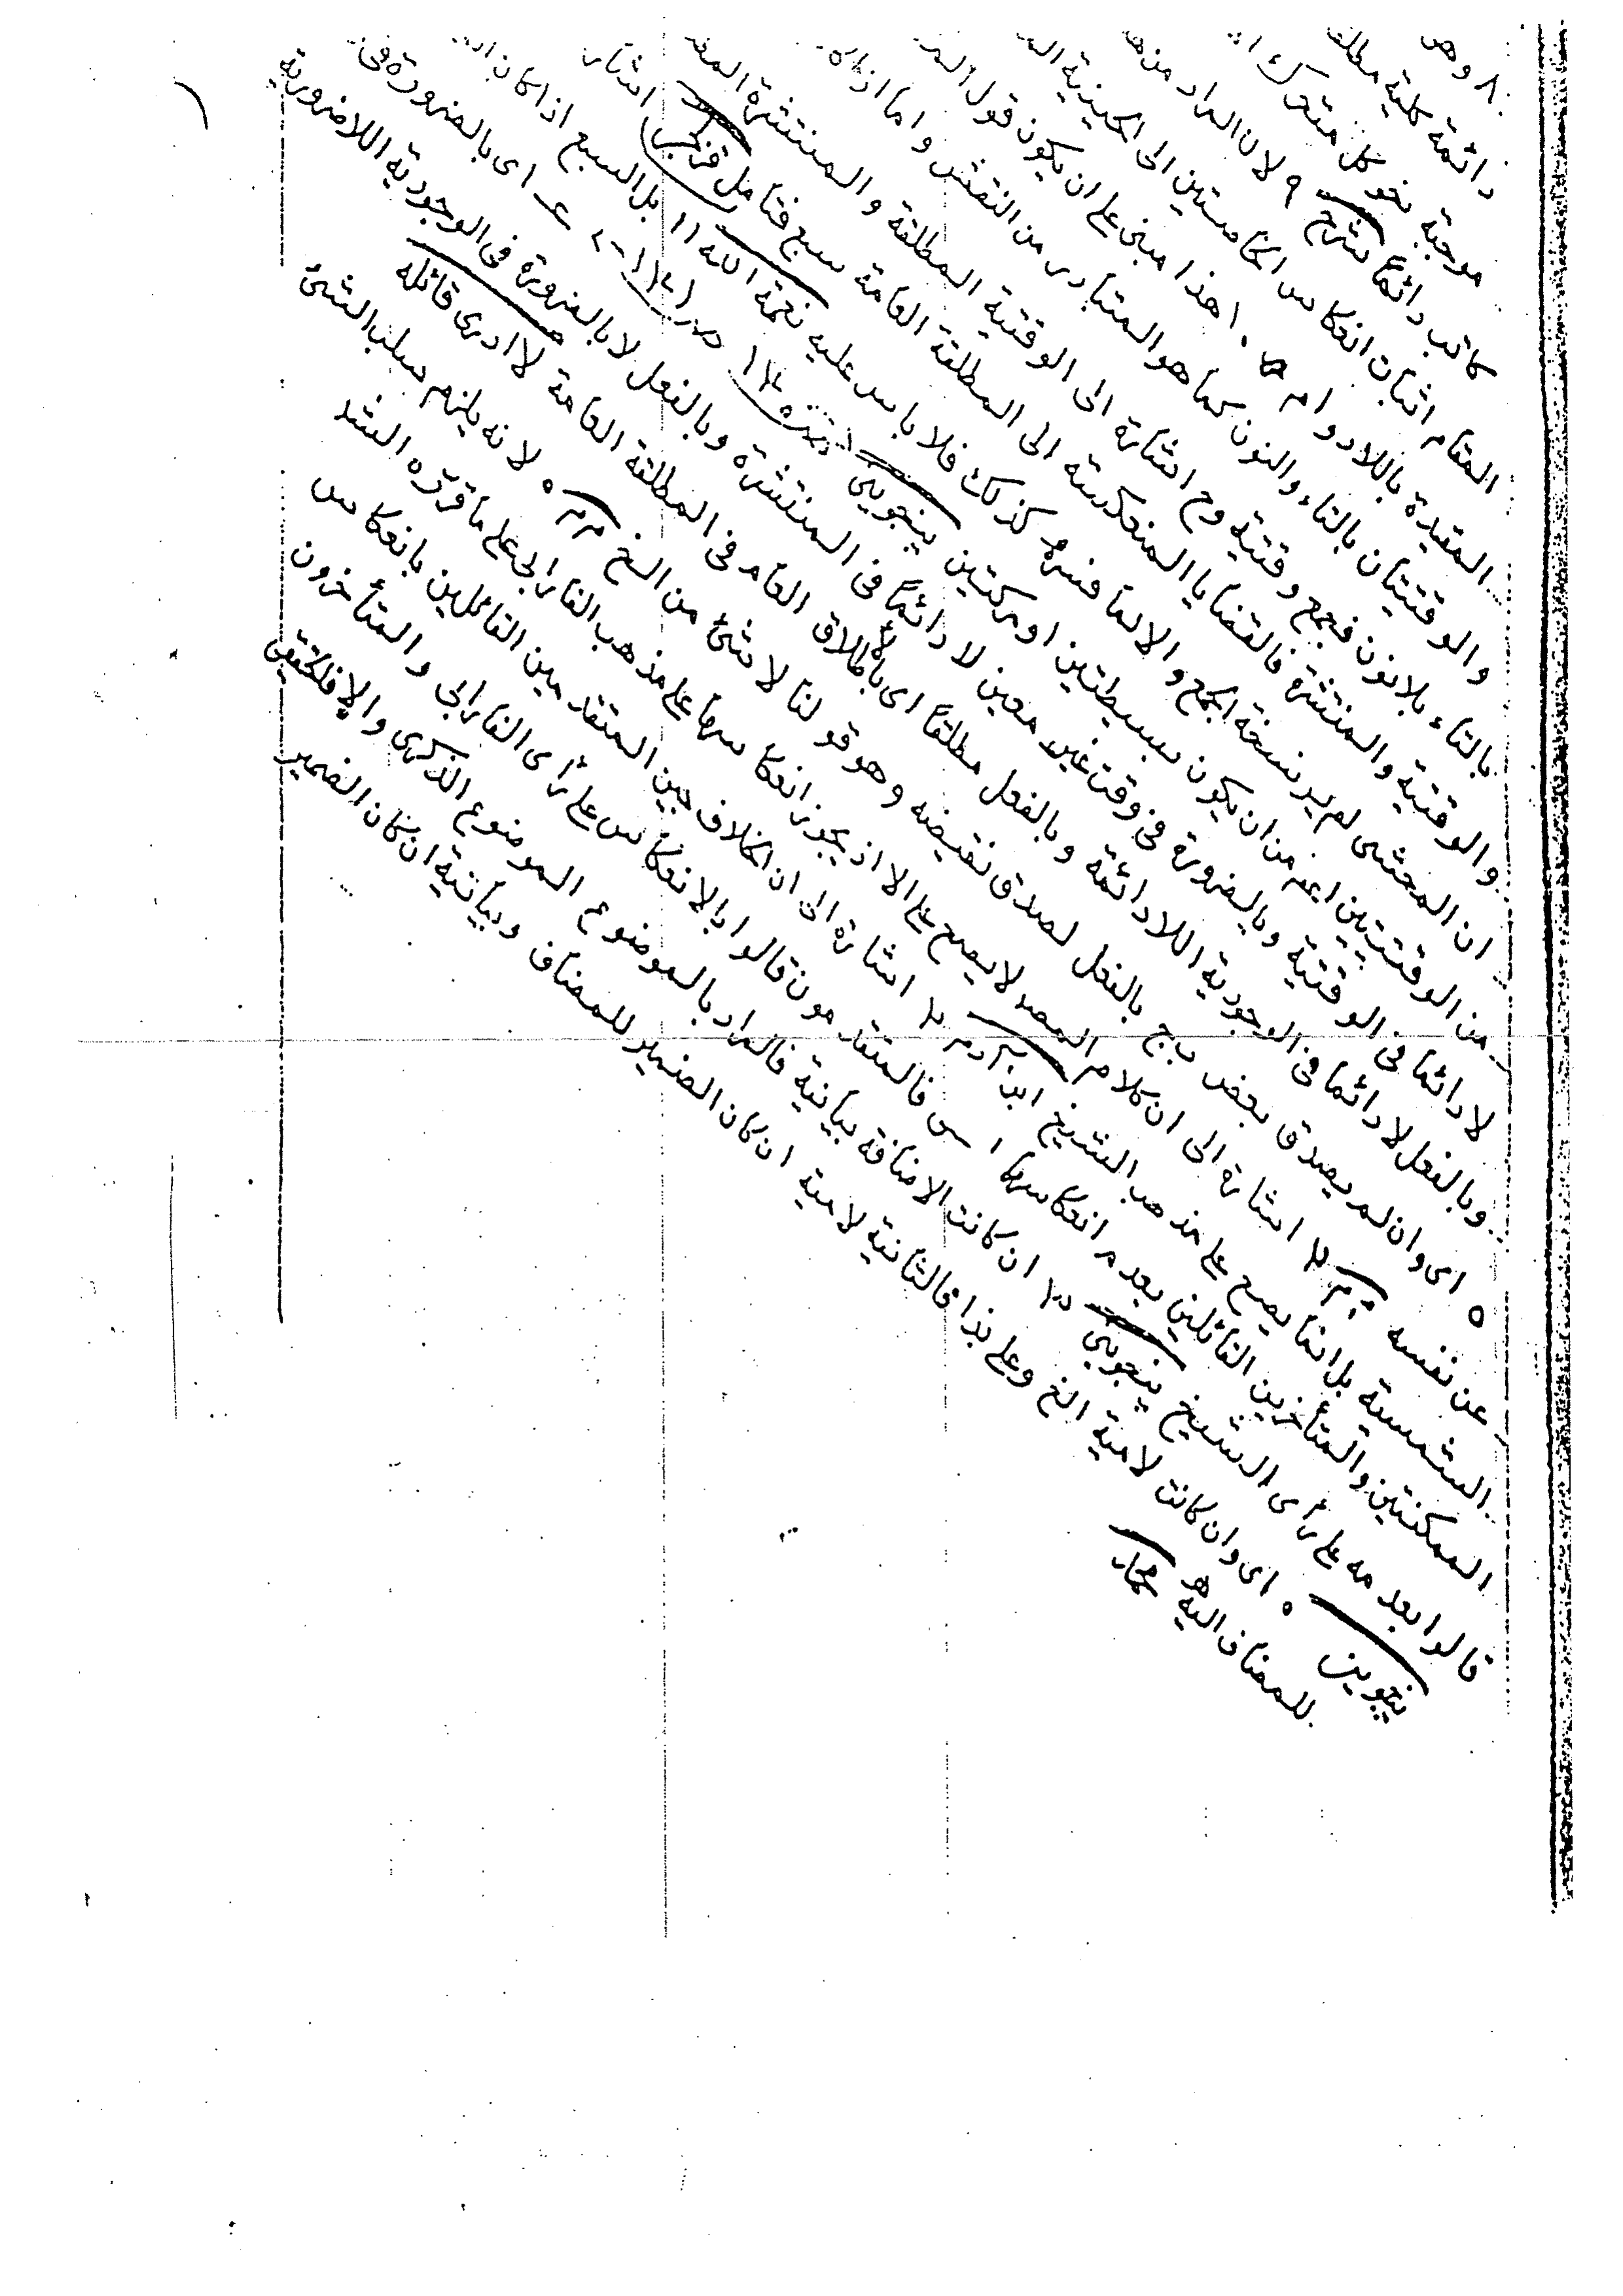 ٨ وهو
دائمة كلية مطلقـ
موجبة نحو كل متحرك
كاتب دائما شرح ٩ لان المراد من هذ
المقام اثبات انعكاس الخاصتين الى الحينية الـ
المقيدة باللادوام ١٠ هذا مبنى على ان يكون قول
والوقتيتان بالتاء والنون كما هو المتبادر من النقش واما اذا كا
بالتاء بلا نون فجمع وقتية وح اشارة الى الوقتية المطلقة والمنتشرة المط
والوقتية والمنتشرة فالقضايا المنعكسة الى المطلقة العامة سبع فتأمل قزلجى اشار
ان المحشى لم ير نسخة الجمع والا لما فسره كذلك فلا باس عليه نعمة الله ١١ بل السبع اذا كان
من الوقتيتين اعم من ان يكون بسيطتين او مركبتين ينجوينى عـ اى بالضرورة فى
لا دائما فى الوقتية وبالضرورة فى وقت غير معين لا دائما فى المنتشرة وبالفعل لا بالضرورة فى الوجودية اللاضرورية
وبالفعل لا دائما فى الوجودية اللادائمة وبالفعل مطلقا اى بالاطلاق العام فى المطلقة العامة لا ادرى قائله
٥ اى وان لم يصدق بعض ب ج بالفعل لصدق نقيضه وهو قولنا لا شئ من الخ م م ٥ لانه يلزم سلب الشئ
عن نفسه م م اشارة الى ان كلام المصد لا يصح على الا اذ يجوز انعكاسها على مذهب الفارابى على ما قرره الشد
الشمسية بل انما يصح على مذهب الشيخ ابن آدم اشارة الى ان الخلاف بين المتقدمين القائلين بانعكاس
الممكنتين والمتأخرين القائلين بعدم انعكاسها فالمتقدمون قالوا بالانعكاس على رأى الفارابى والمتأخرون
قالوا بعدمه على رأى الشيخ ينجوينى ان كانت الاضافة بيانية فالمراد بالموضوع الموضوع الذكرى والا فالحقيقى
ينجوين ٥ اى وان كانت لامية الخ وعلى هذا فالثانية لامية ان كان الضمير للمضاف وبيانية ان كان الضمير
للمضاف اليه محمد